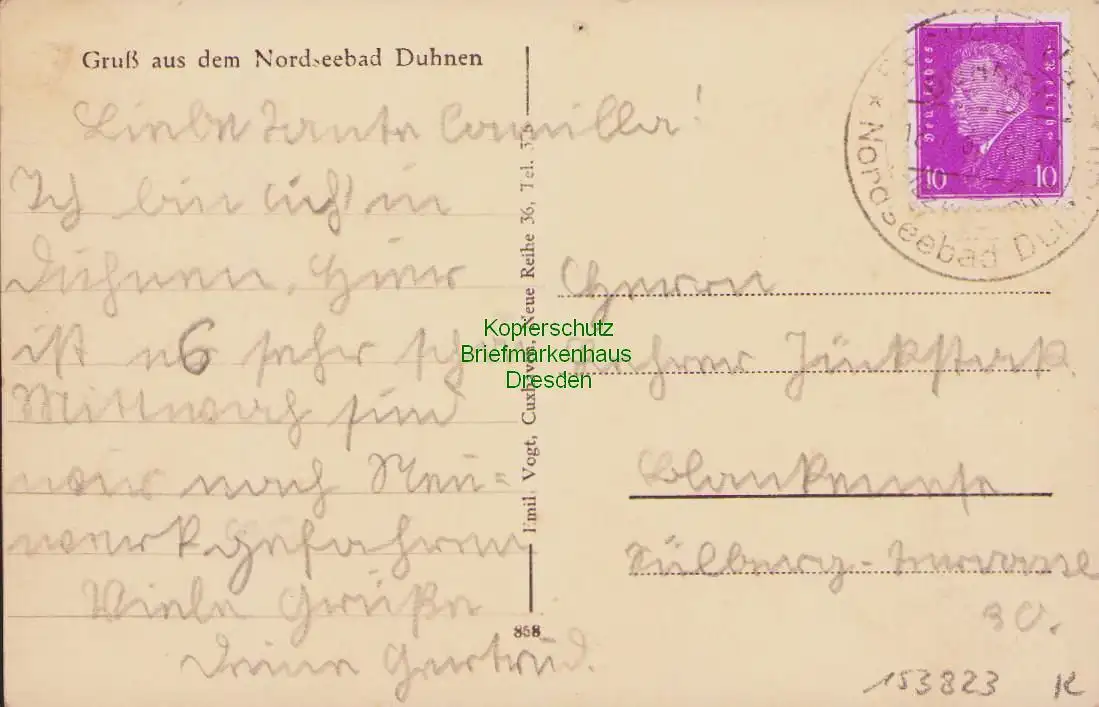 Gruß aus dem Nordseebad Duhnen
Liebe Tante Camilla!
Ich bin in
Duhnen. Hier
ist es sehr schön
Mittwoch sind
wir nach Neu=
werk gefahren
Viele Grüße
Deine Gertrud.
Emil Vogt, Cuxhaven, Neue Reihe 36, Tel.
858
Kopierschutz
Briefmarkenhaus
Dresden
Deutsches Reich
10 10
* Nordseebad Duhnen *
Herrn
Lehrer
Blankenese
Süllberg-Terrasse
30.
153823 K